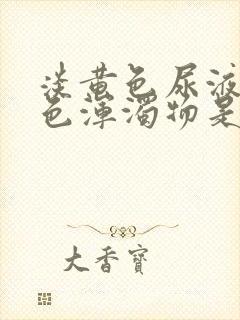 淡黄色尿液
色浑濁物是
大香寶